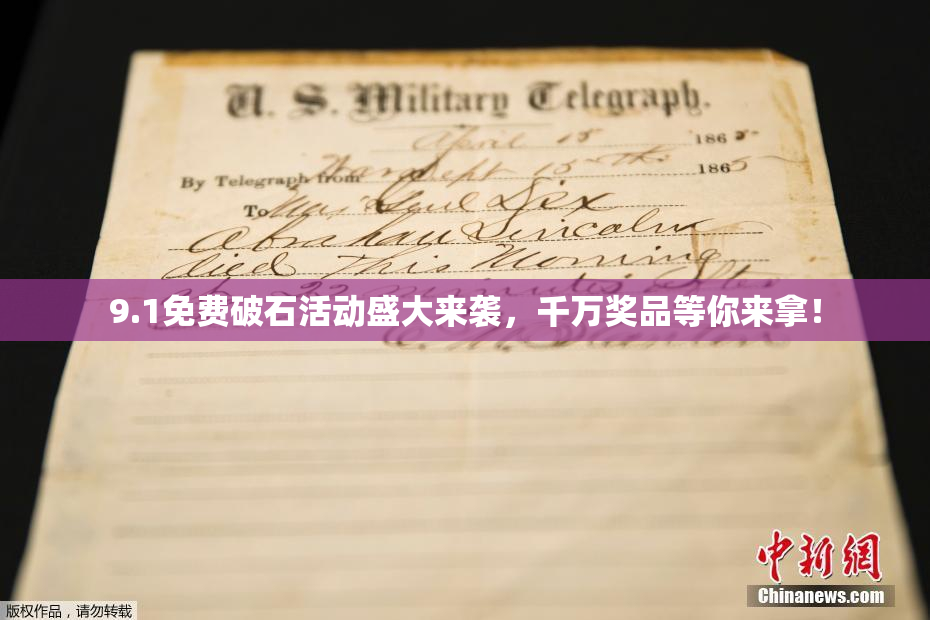 U. S. Military Telegraph.
April 15 1865
By Telegraph from War Dept 15th 1865
To Maj Genl Dix
Abraham Lincoln
died This Morning
at 22 minutes after
9.1免费破石活动盛大来袭，千万奖品等你来拿！
E. M. Stanton
中新网
Chinanews.com
版权作品，请勿转载